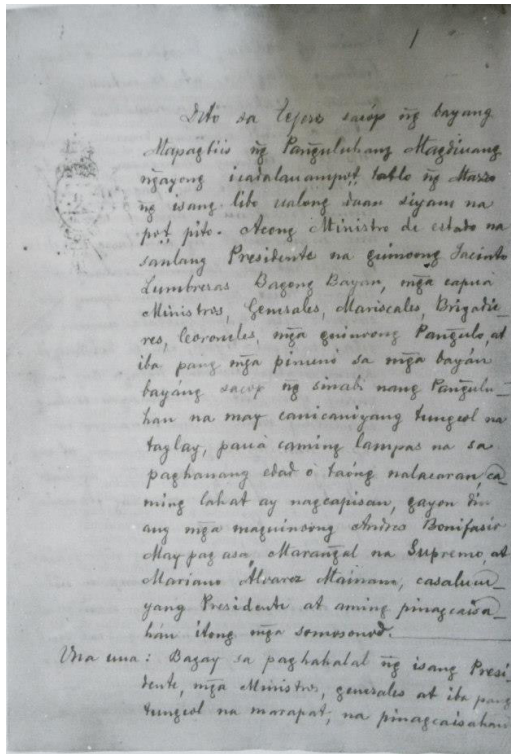 1
Dito sa Tejero sacóp ñg bayang
Mapagtiis ñg Pañguluhang Magdiwang
ñgayong icadalauampot tatlo ñg Marzo
ñg isang libo ualong daan siyam na
pot pito. Acong Ministro de estado na
sanlang Presidente na guinoong Jacinto
Lumbreras Bagong Bayan, mg̃a capua
Ministros, Generales, Mariscales, Brigadie-
res, Coroneles, mg̃a guinoong Pañgulo, at
iba pang mg̃a pinunó sa mg̃a bayán
bayáng sacop ñg sinabi nang Pañgulu-
han na may canicaniyang tungcol na
taglay, pauà caming lampas na sa
paghanang edad ó taóng nalacaran, ca-
ming lahat ay nagcapisan, gayon din
ang mg̃a maguinoong Andres Bonifasio
May pag asa, Marañgal na Supremo, at
Mariano Alvarez Mainam, casaluku-
yang Presidente at aming pinagcaisa-
hán itong mg̃a somosonod.
Una una: Bagay sa paghahalal ñg isang Presi-
dente, mg̃a Ministros, generales at iba pang
tungcol na marapat, na pinagcaisahan